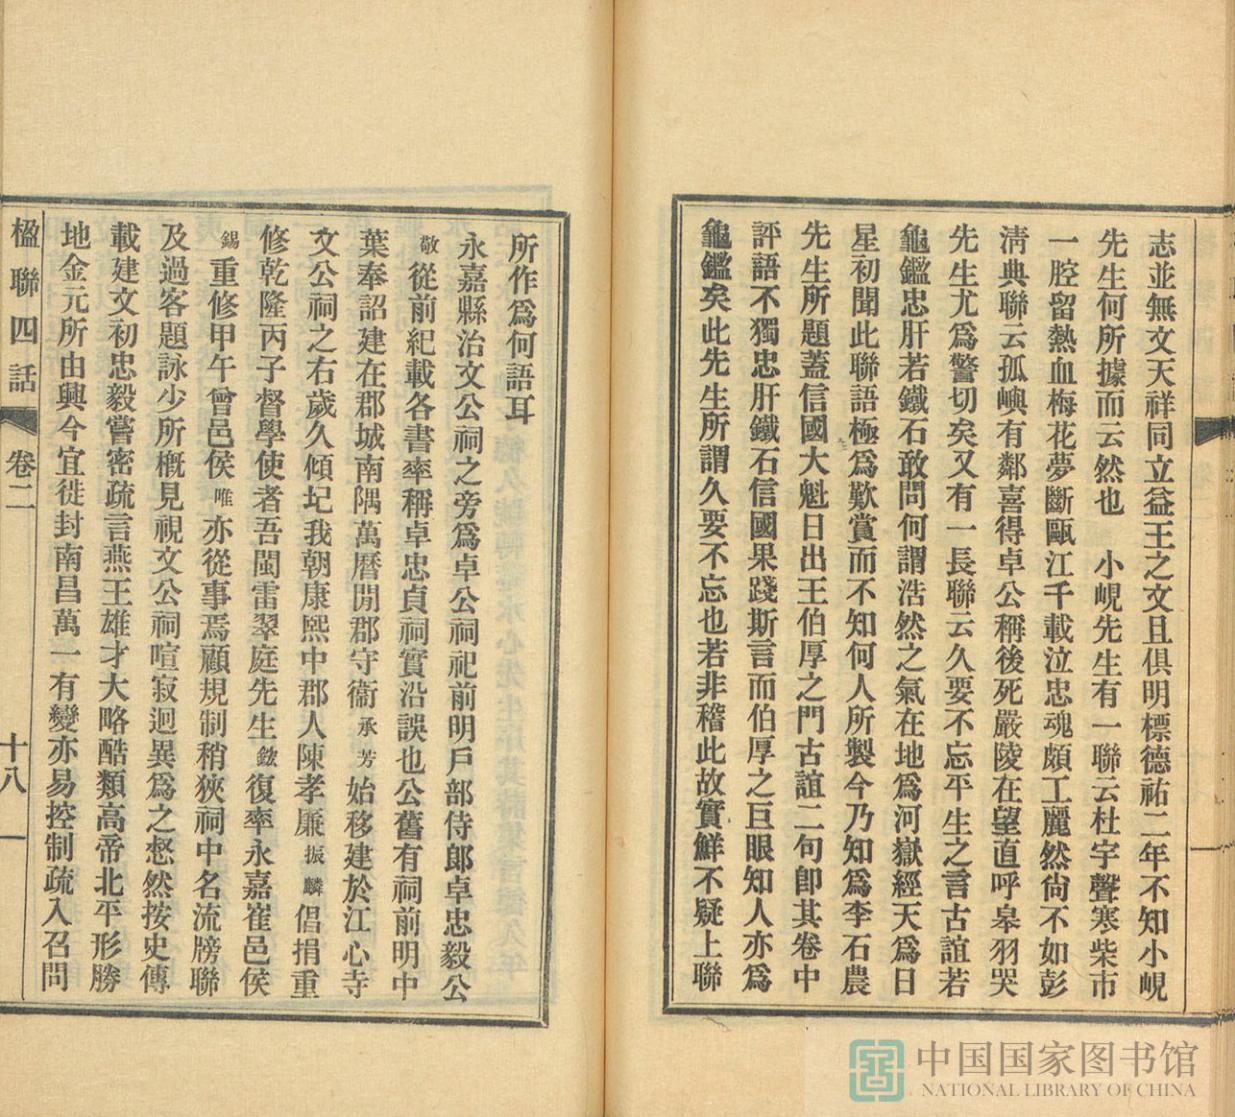 志並無文天祥同立益王之文且俱明標德祐二年不知小峴
先生何所據而云然也　小峴先生有一聯云杜宇聲寒柴市
一腔留熱血梅花夢斷甌江千載泣忠魂頗工麗然尙不如彭
淸典聯云孤嶼有鄰喜得卓公稱後死嚴陵在望直呼皋羽哭
先生尤爲警切矣又有一長聯云久要不忘平生之言古誼若
龜鑑忠肝若鐵石敢問何謂浩然之氣在地爲河嶽經天爲日
星初聞此聯語極爲歎賞而不知何人所製今乃知爲李石農
先生所題蓋信國大魁日出王伯厚之門古誼二句卽其卷中
評語不獨忠肝鐵石信國果踐斯言而伯厚之巨眼知人亦爲
龜鑑矣此先生所謂久要不忘也若非稽此故實鮮不疑上聯
所作爲何語耳
永嘉縣治文公祠之旁爲卓公祠祀前明戶部侍郞卓忠毅公
敬從前紀載各書率稱卓忠貞祠實沿誤也公舊有祠前明中
葉奉詔建在郡城南隅萬曆閒郡守衞承芳始移建於江心寺
文公祠之右歲久傾圮我朝康熙中郡人陳孝廉振麟倡捐重
修乾隆丙子督學使者吾閩雷翠庭先生鋐復率永嘉崔邑侯
錫重修甲午曾邑侯唯亦從事焉顧規制稍狹祠中名流牓聯
及過客題詠少所槪見視文公祠喧寂迥異爲之惄然按史傳
載建文初忠毅嘗密疏言燕王雄才大略酷類高帝北平形勝
地金元所由興今宜徙封南昌萬一有變亦易控制疏入召問
楹聯四話　卷二　十八
中国国家图书馆
NATIONAL LIBRARY OF CHINA